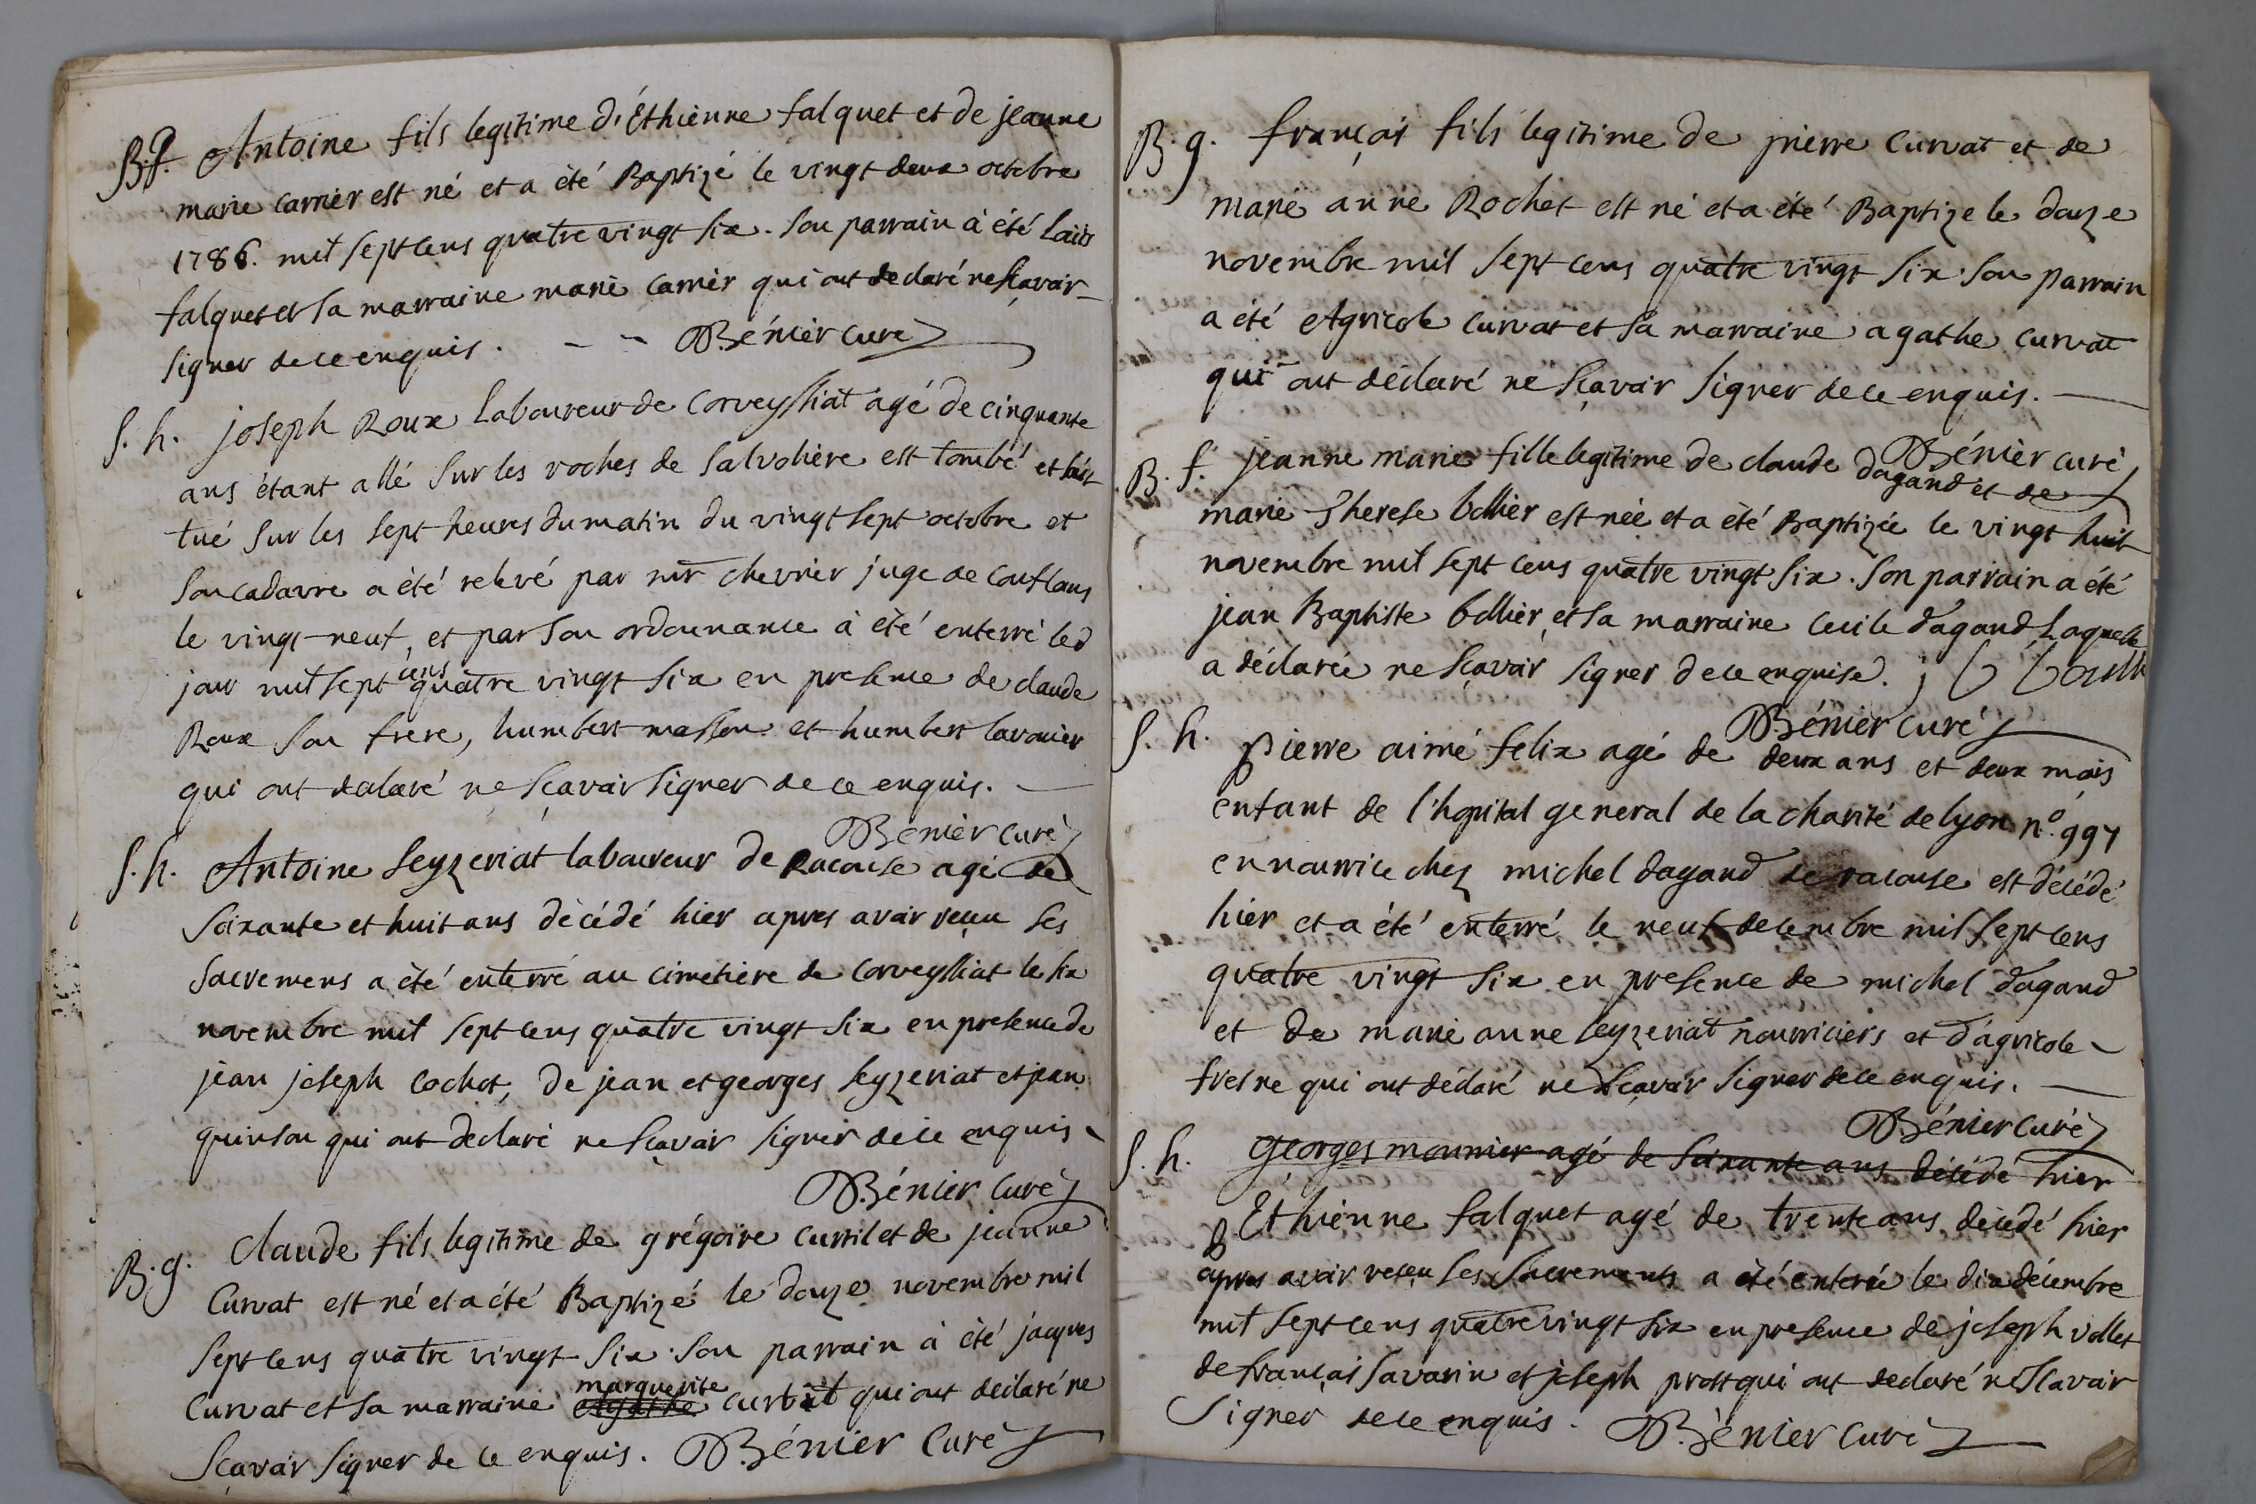 B.g. Antoine fils legitime d'Ethienne falquet et de jeanne
marie carrier est né et a été Baptizé le vingt deux octobre
1786. mil sept cens quatre vingt six. son parrain à été
falquet et sa marraine marie carrier qui ont declaré ne sçavoir
signer de ce enquis. - - Bénier curé
S. h. joseph Roux Laboureur de Corveyssiat agé de cinquante
ans étant allé sur les roches de salvohière est tombé et s'est
tué sur les sept heures du matin du vingt sept octobre et
son cadavre a été relevé par mr chevrier juge de Conflans
le vingt-neuf, et par son ordonnance à été enterré led
jour mil sept cens quatre vingt six en presence de claude
Roux son frere, humbert masson et humbert lavonier
qui ont declaré ne sçavoir signer de ce enquis.
Bénier curé
S. h. Antoine seyzeriat laboureur de Racouse agé de
soixante et huit ans décédé hier apres avoir reçeu ses
sacremens a été enterré au cimetiere de Corveyssiat le six
novembre mil sept cens quatre vingt six en presence de
jean joseph Cochet, de jean et georges seyzeriat et jean
quinson qui ont declaré ne sçavoir signer de ce enquis
Bénier Curé
B. g. Claude fils legitime de grégoire curtil et de jeanne
Curvat est né et a été Baptizé le douze novembre mil
sept cens quatre vingt six. son parrain à été jacques
Curvat et sa marraine Agathe marguerite curtil qui ont declaré ne
sçavoir signer de ce enquis. Bénier Curé
B. g. françois fils legitime de pierre Curvat et de
marie anne Rochet est né et a été Baptize le douze
novembre mil sept cens quatre vingt six son parrain
a été Agricole curvat et sa marraine agathe curvat
qui ont déclaré ne sçavoir signer de ce enquis.
Bénier curé
B. f. jeanne marie fille legitime de claude dagand et de
marie Therese bollier est née et a été Baptizée le vingt huit
novembre mil sept cens quatre vingt six. son parrain a été
jean Baptiste bollier, et sa marraine Cecile dagand Laquelle
a déclarée ne sçavoir signer de ce enquise.
Bénier curé
S. h. Pierre aimé felix agé de deux ans et deux mois
enfant de l'hopital general de la charité de lyon n° 997
en nourrice chez michel dagand de racouse est décédé
hier et a été enterré le neuf decembre mil sept cens
quatre vingt six en presence de michel dagand
et de marie anne seyzeriat nourriciers et d'agricole
fresne qui ont déclaré ne sçavoir signer de ce enquis.
Bénier Curé
S. h. Georges monnier agé de soixante ans décédé hier
Ethienne falquet agé de trente ans décédé hier
apres avoir reçeu ses sacrements a été enterré le dix décembre
mil sept cens quatre vingt six en presence de joseph vollet
de françois savarin et joseph prost qui ont declaré ne sçavoir
Signer de ce enquis. Bénier curé